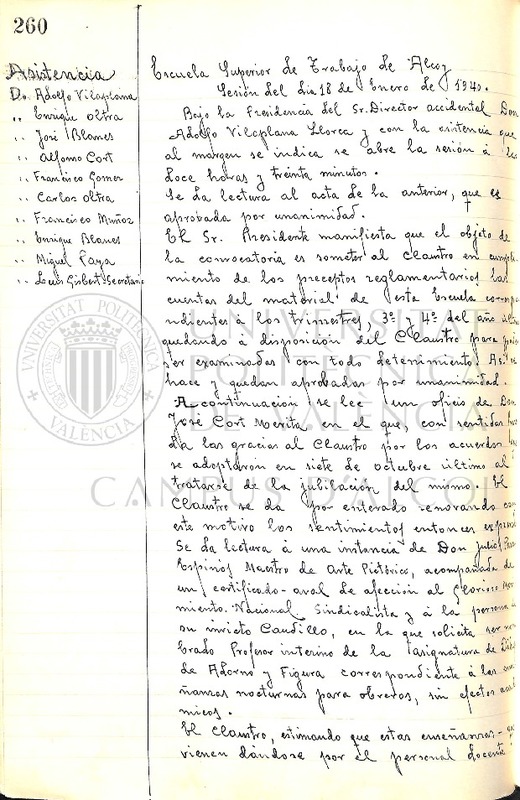 260
Asistencia
Dn. Adolfo Vilaplana
" Enrique Oltra
" José Blanes
" Alfonso Cort
" Francisco Gomer
" Carlos Oltra
" Francisco Muñoz
" Enrique Blanes
" Miguel Paya
" Luis Gisbert Secretario
Escuela Superior de Trabajo de Alcoy
Sesión del dia 18 de Enero de 1940.
Bajo la Presidencia del Sr. Director accidental Don
Adolfo Vilaplana Llorca y con la asistencia que
al margen se indica se abre la sesión á las
doce horas y treinta minutos.
Se da lectura al acta de la anterior, que es
aprobada por unanimidad.
El Sr. Presidente manifiesta que el objeto de
la convocatoria es someter al Claustro en cumpli
miento de los preceptos reglamentarios las
cuentas del material de esta Escuela corresp
ndientes á los trimestres, 3º y 4º del año
quedando á disposición del Claustro para
ser examinadas con todo detenimiento. Así se
hace y quedan aprobadas por unanimidad.
A continuación se lee un oficio de Don
José Cort Merita en el que, con sentidas
da las gracias al Claustro por los acuerdos
se adoptaron en siete de octubre último al
tratarse de la jubilación del mismo. El
Claustro se da por enterado renovando con
este motivo los sentimientos entonces
Se da lectura á una instancia de Don Julio
Espinós Maestro de Arte Pictórico, acompañada de
un certificado-aval de afección al Glorioso
miento Nacional Sindicalista y á la persona
su invicto Caudillo, en la que solicita ser
brado Profesor interino de la asignatura de
de Adorno y Figura correspondiente á las
ñanzas nocturnas para obreros, sin efectos
micos.
El Claustro, estimando que estas enseñanzas
vienen dándose por el personal docente
UNIVERSITAT
POLITÈCNICA
DE VALÈNCIA
CAMPUS D'ALCOI
UNIVERSITAT POLITÈCNICA
VALÈNCIA